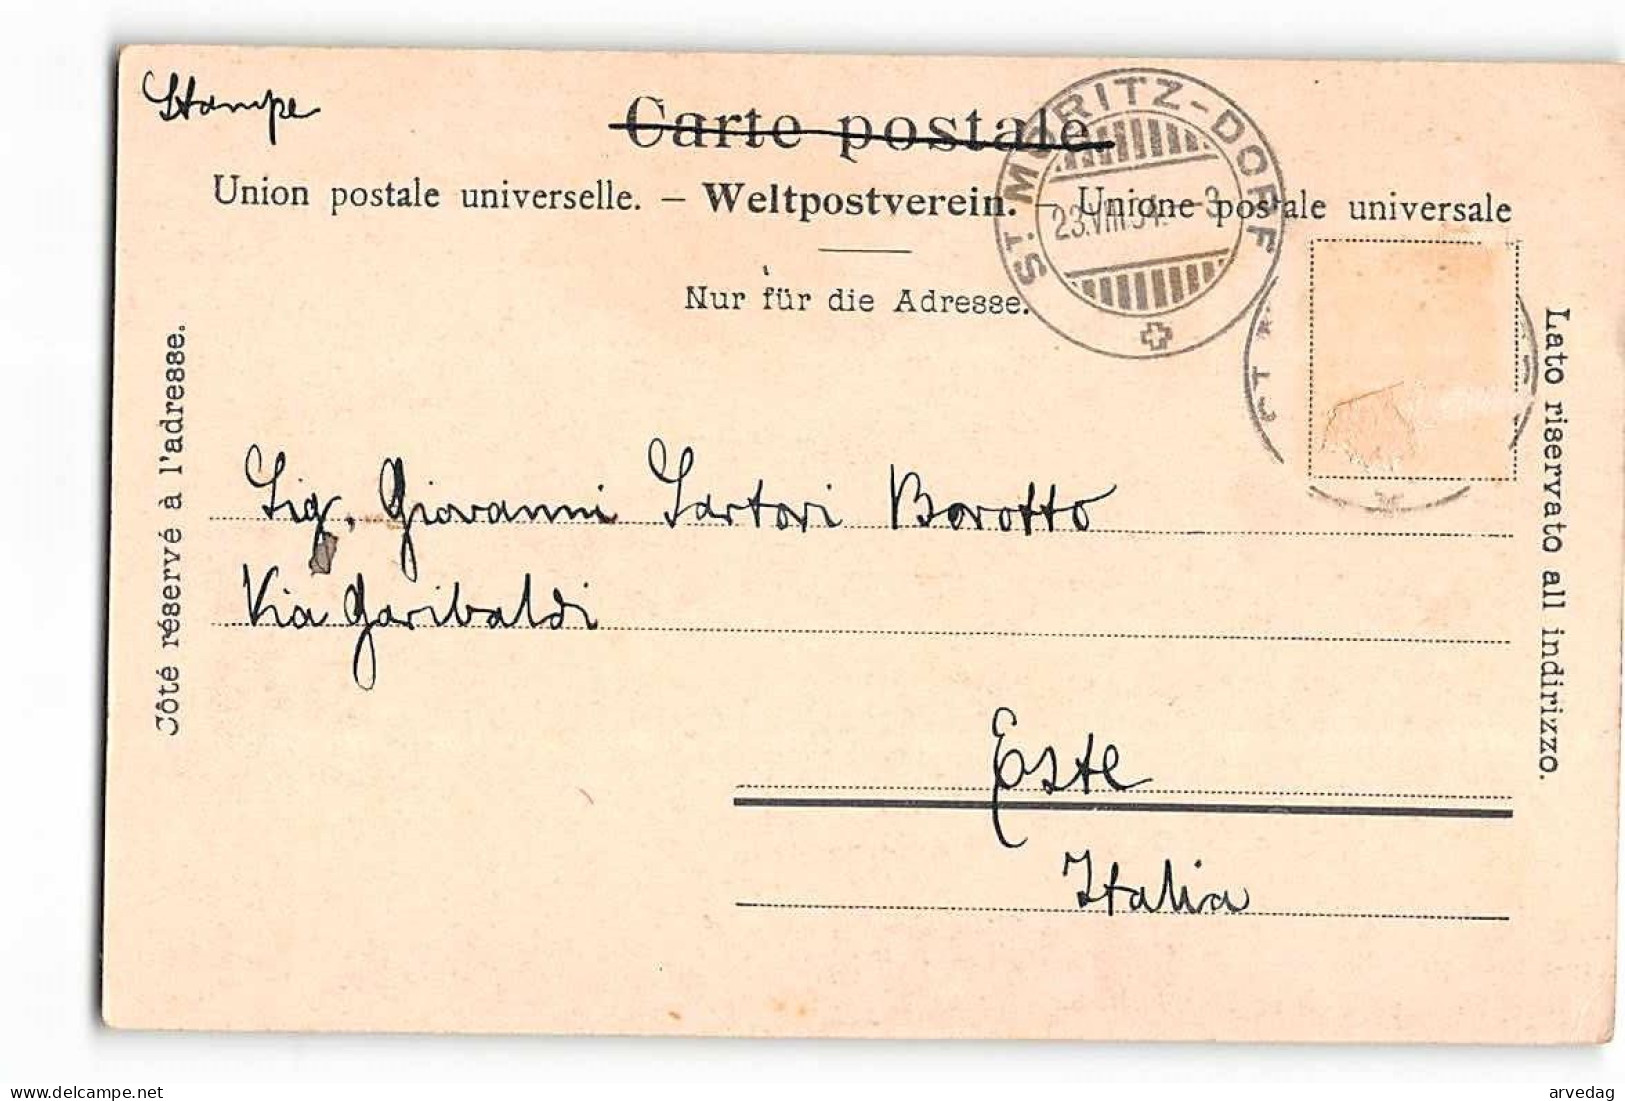 Stampe
Carte postale
Union postale universelle. – Weltpostverein. – Unione postale universale
Nur für die Adresse.
ST. MORITZ-DORF
23.VIII.04. -3
Côté réservé à l'adresse.
Lato riservato all indirizzo.
Sig. Giovanni Sartori Borotto
Via Garibaldi
Este
Italia
www.delcampe.net
arvedag